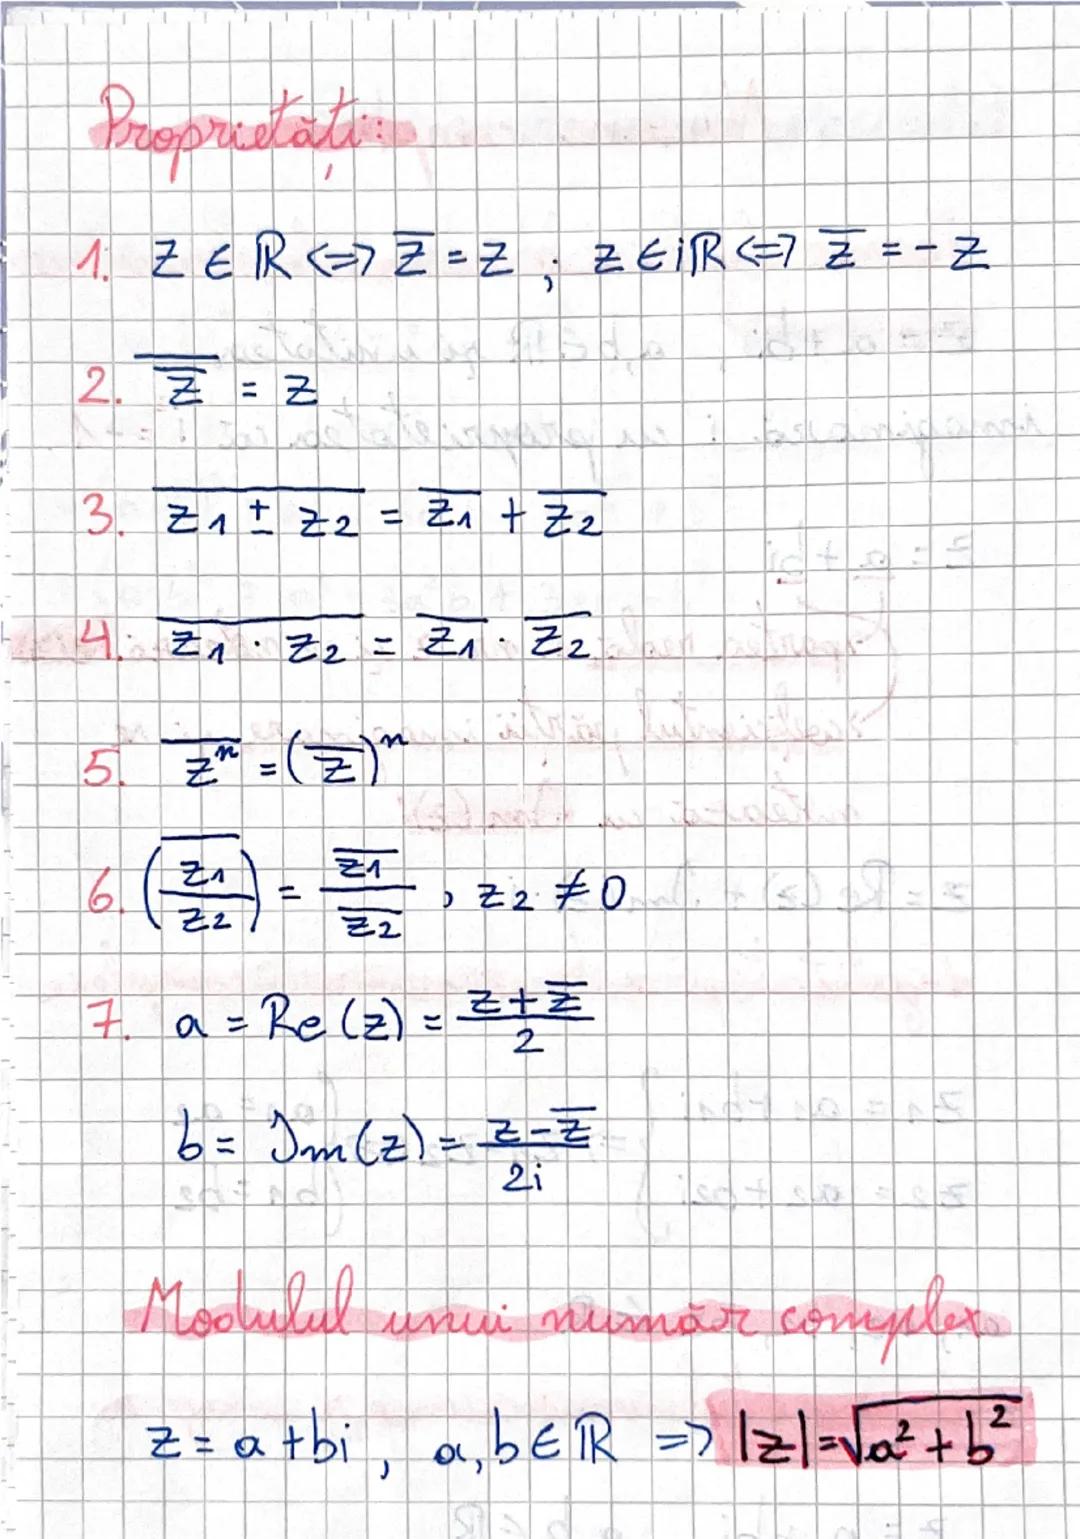 Proprietăți:
1. z ∈ ℝ <=> z̅ = z ; z ∈ iℝ <=> z̅ = - z
2. z̅̅ = z
3. \overline{z₁ ± z₂} = \overline{z₁} + \overline{z₂}
4. \overline{z₁ · z₂} = \overline{z₁} · \overline{z₂}
5. \overline{zⁿ} = (\overline{z})ⁿ
6. \overline{(z₁/z₂)} = \overline{z₁}/\overline{z₂} , z₂ ≠ 0
7. a = Re (z) = (z + \overline{z})/2
b = Im (z) = (z - \overline{z})/2i
Modulul unui număr complex
z = a + bi , a, b ∈ ℝ => |z| = √(a² + b²)